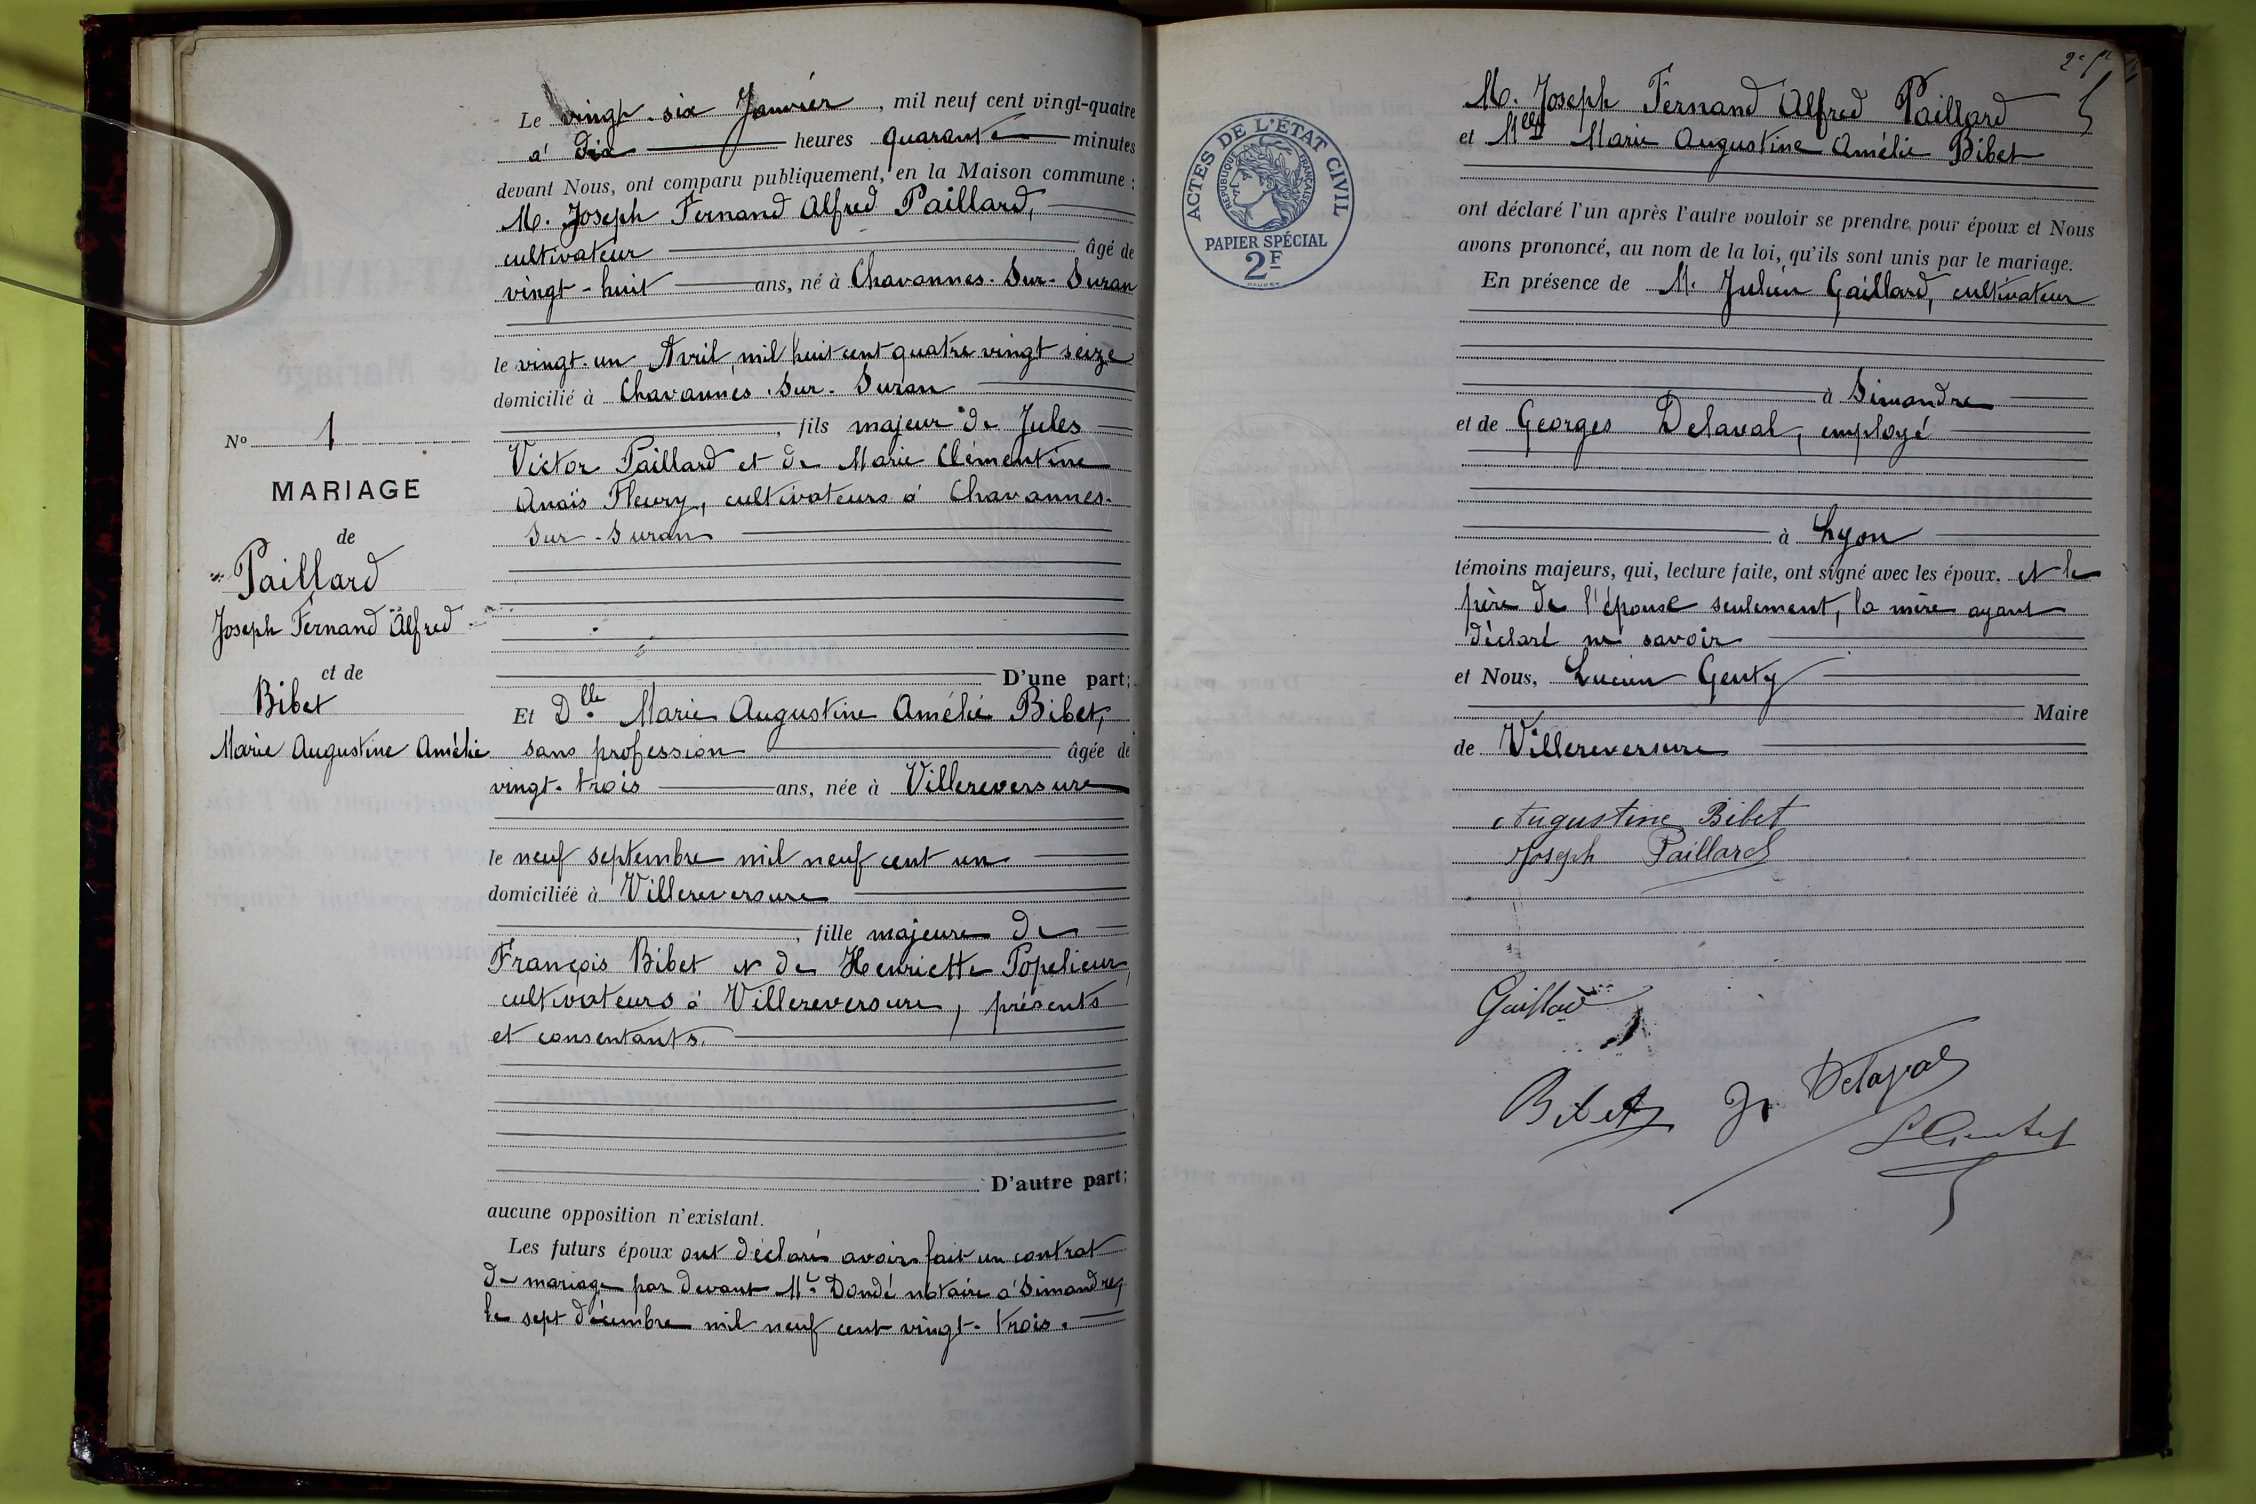 N° 1
MARIAGE
de
Paillard
Joseph Fernand Alfred
et de
Bibet
Marie Augustine Amélie
Le vingt-six Janvier, mil neuf cent vingt-quatre
à dix heures quarante minutes
devant Nous, ont comparu publiquement, en la Maison commune :
M. Joseph Fernand Alfred Paillard,
cultivateur âgé de
vingt-huit ans, né à Chavannes-Sur-Suran
le vingt-un Avril mil huit cent quatre vingt seize
domicilié à Chavannes-Sur-Suran
, fils majeur de Jules
Victor Paillard et de Marie Clémentine
Anaïs Fleury, cultivateurs à Chavannes-
Sur-Suran
D'une part;
Et Dlle Marie Augustine Amélie Bibet,
sans profession âgée de
vingt-trois ans, née à Villereversure
le neuf septembre mil neuf cent un
domiciliée à Villereversure
, fille majeure de
François Bibet et de Henriette Popelieur,
cultivateurs à Villereversure, présents
et consentants.
D'autre part;
aucune opposition n'existant.
Les futurs époux ont déclaré avoir fait un contrat
de mariage par devant Me Dondé notaire à Simandre,
le sept décembre mil neuf cent vingt-trois.
ACTES DE L'ÉTAT CIVIL
RÉPUBLIQUE FRANÇAISE
PAPIER SPÉCIAL
2F
M. Joseph Fernand Alfred Paillard
et Melle Marie Augustine Amélie Bibet
ont déclaré l'un après l'autre vouloir se prendre pour époux et Nous
avons prononcé, au nom de la loi, qu'ils sont unis par le mariage.
En présence de M. Julien Gaillard, cultivateur
à Simandre
et de Georges Delaval, employé
à Lyon
témoins majeurs, qui, lecture faite, ont signé avec les époux, et le
père de l'épouse seulement, la mère ayant
déclaré ne savoir
et Nous, Lucien Genty
Maire
de Villereversure
Augustine Bibet
Joseph Paillard
Gaillard
Bibet
Delaval
L Genty